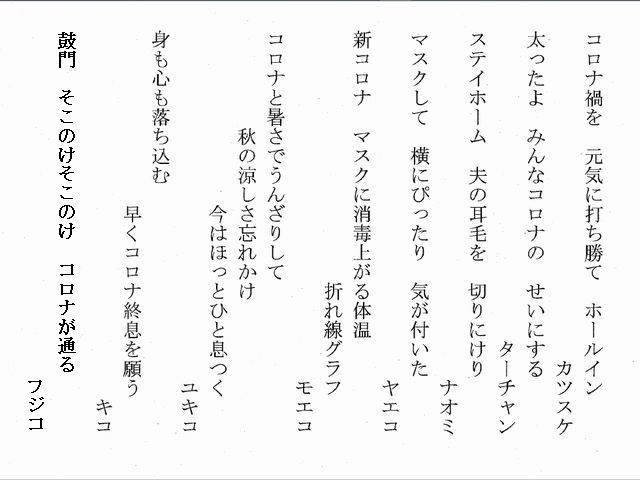 コロナ禍を　元気に打ち勝て　ホールイン
カツスケ
太ったよ　みんなコロナの　せいにする
ターチャン
ステイホーム　夫の耳毛を　切りにけり
ナオミ
マスクして　横にぴったり　気が付いた
ヤエコ
新コロナ　マスクに消毒上がる体温
折れ線グラフ
モエコ
コロナと暑さでうんざりして
秋の涼しさ忘れかけ
今はほっとひと息つく
ユキコ
身も心も落ち込む
早くコロナ終息を願う
キコ
鼓門　そこのけそこのけ　コロナが通る
フジコ